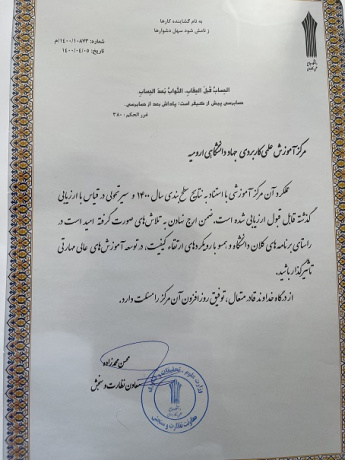 به نام گشاینده کارها
ز نامش شود سهل دشوارها
شماره: ۱۴۰۰/۱۰۸۷۳/م
تاریخ: ۱۴۰۰/۰۴/۰۵
الحساب قبل العقاب، الثواب بعد الحساب
حسابرسی پیش از کیفر است؛ پاداش بعد از حسابرسی.
غرر الحکم: ۳۸۰
مرکز آموزش علمی کاربردی جهاد دانشگاهی ارومیه
عملکرد آن مرکز آموزشی با استناد به نتایج سطح بندی سال ۱۴۰۰ و سیر تحولی در قیاس با ارزیابی
گذشته قابل قبول ارزیابی شده است. ضمن ارج نهادن به تلاش‌های صورت گرفته امید است در
راستای برنامه‌های کلان دانشگاه و همسو با رویکردهای ارتقاء کیفیت، در توسعه آموزش‌های عالی مهارتی
تاثیرگذار باشید.
از درگاه خداوند قادر متعال، توفیق روزافزون آن مرکز را مسئلت دارد.
محسن محمدزاده
معاون نظارت و سنجش
وزارت علوم، تحقیقات و فناوری
معاونت نظارت و سنجش